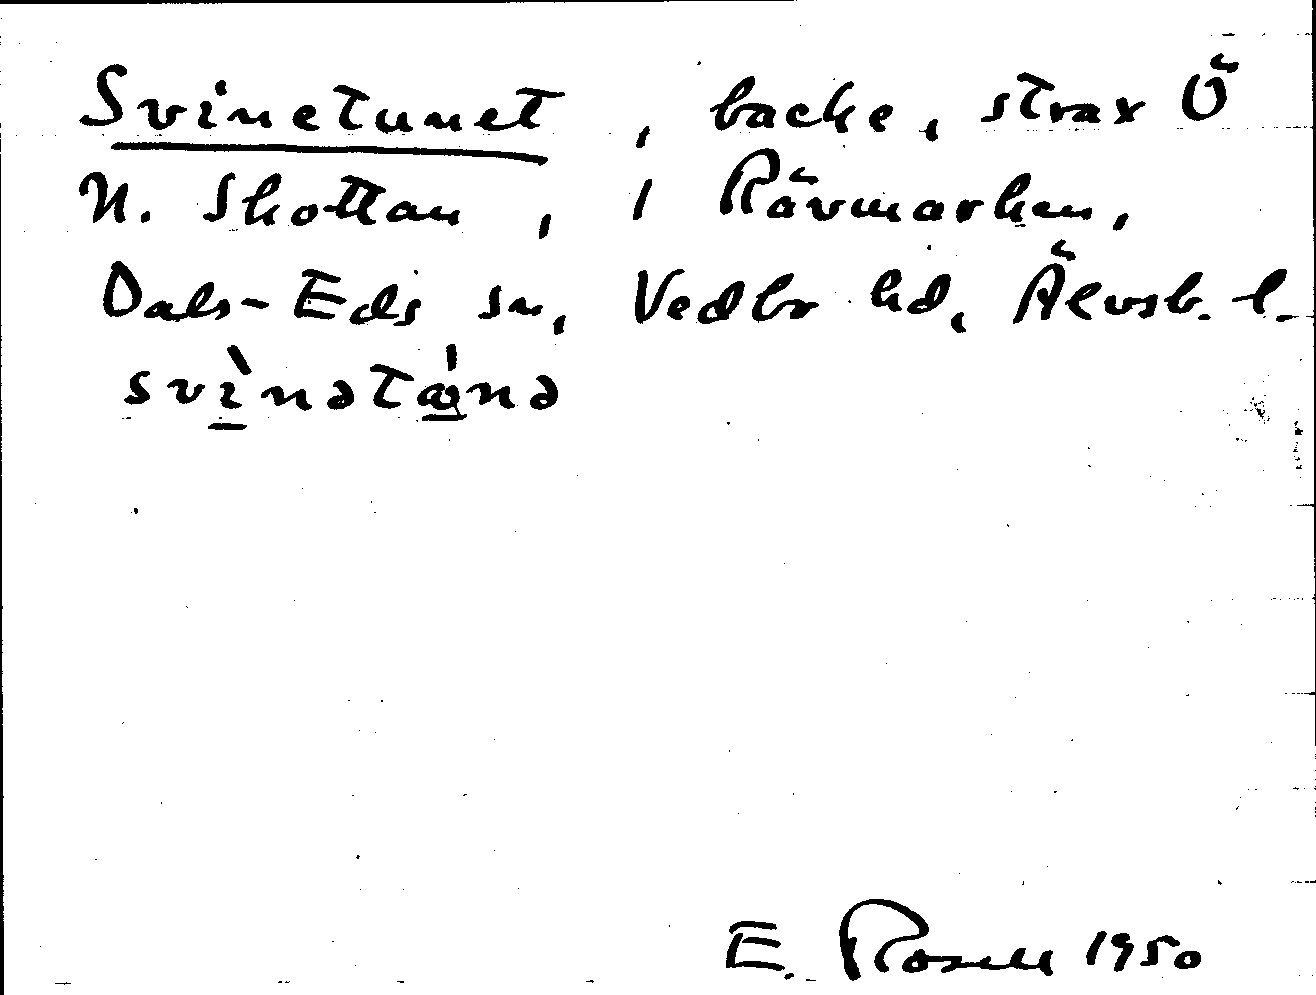 Svinetunet, backe, strax Ö
N. Skottan, i Rävmarken,
Dals-Eds sn, Vedbo hd, Älvsb. l.
E. Rosell 1950